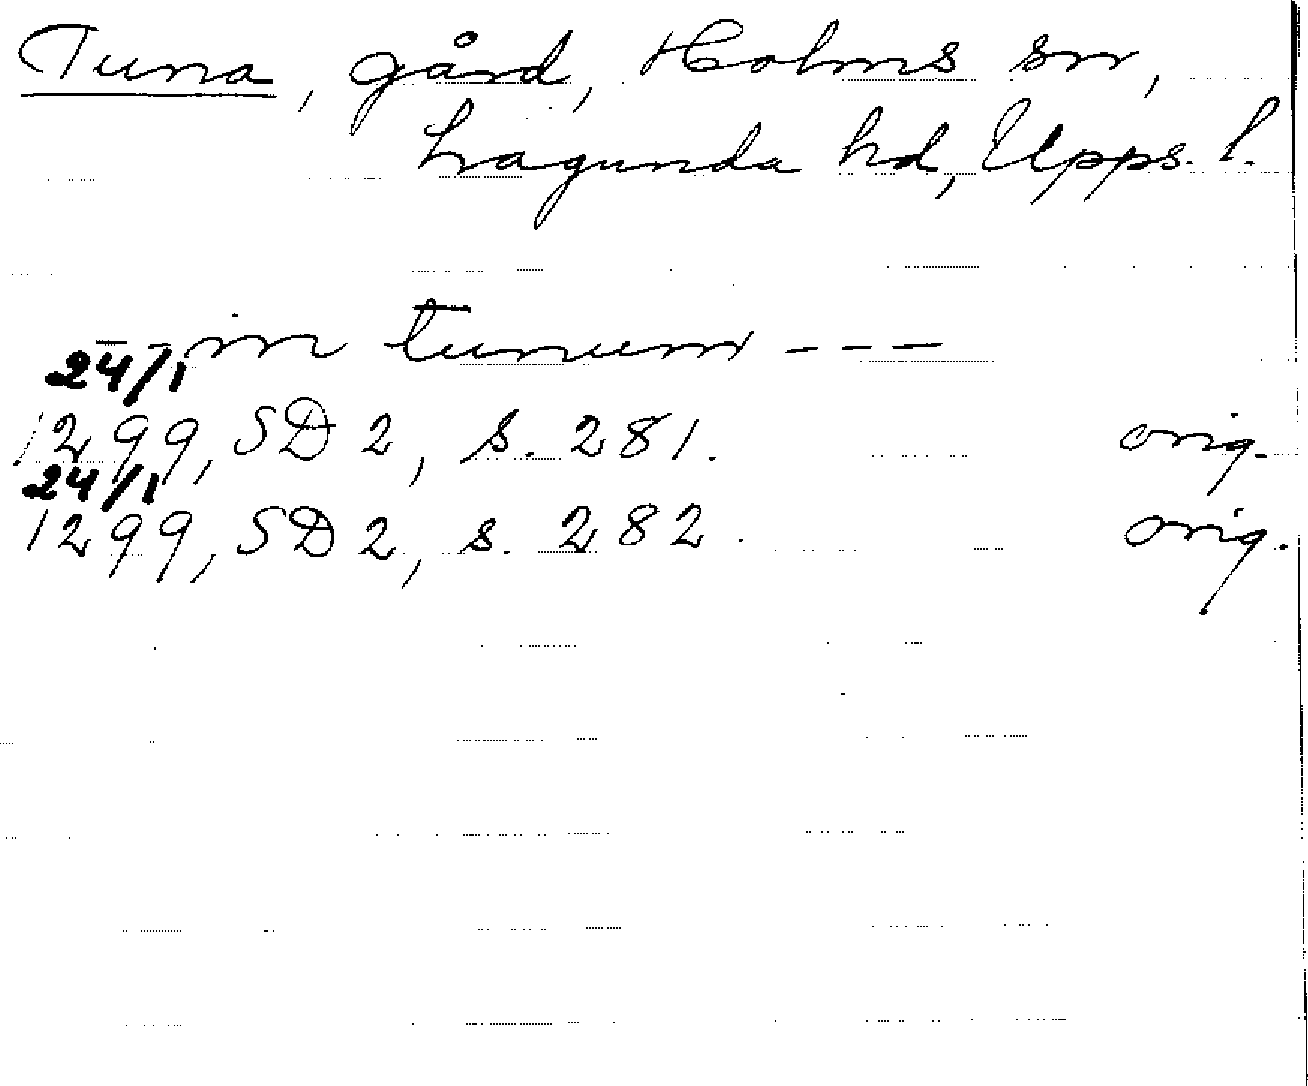 Tuna, gård, Holms sn,
Lagunda hd, Upps. l.
- - in tunum - - -
24/1
1299, SD 2, s. 281. orig.
24/1
1299, SD 2, s. 282. orig.